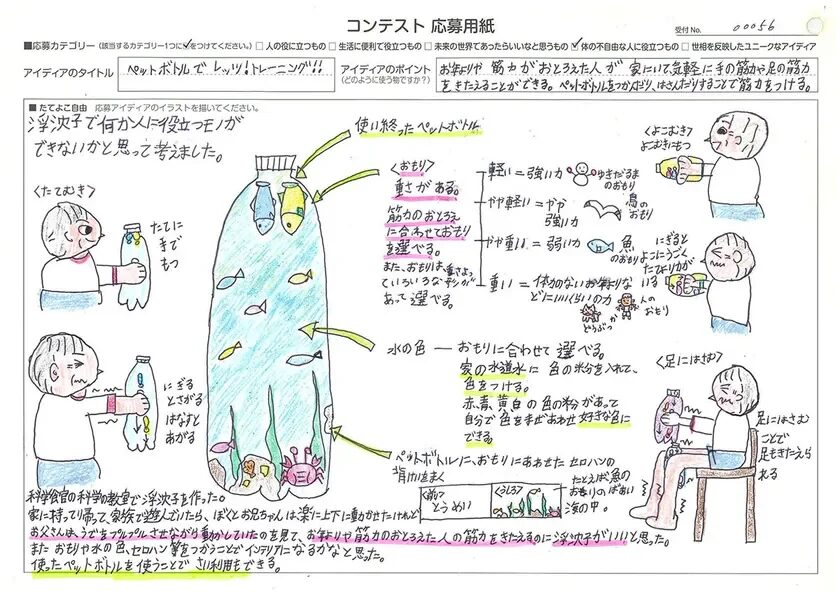 コンテスト 応募用紙
受付No. 00056
■応募カテゴリー (該当するカテゴリー1つに✓をつけてください。) □人の役に立つもの □生活に便利で役立つもの □未来の世界であったらいいなと思うもの ☑体の不自由な人に役立つもの □世相を反映したユニークなアイディア
アイディアのタイトル
ペットボトルでレッツ!トレーニング!!
アイディアのポイント
(どのように使う物ですか?)
お年よりや筋力がおとろえた人が家にいて気軽に手の筋力や足の筋力
をきたえることができる。ペットボトルをつかんだり、はさんだりすることで筋力をつける。
■たてよこ自由 応募アイディアのイラストを描いてください。
浮沈子で何か人に役立つモノが
できないかと思って考えました。
使い終ったペットボトル
<たてむき>
たてに
もつ
にぎる
とさがる
はなすと
あがる
<おもり>
重さがある。
筋力のおとろえ
に合わせておもり
を選べる。
また、おもりは、重さよっ
ていろいろな
あって選べる。
軽い=強い力
ゆきだるま
のおもり
やや軽い=やや
強い力
鳥の
おもり
やや重い=弱い力
魚
のおもり
重い=体力のないお年よりな
どにいいくらいの力
どうぶつ
か
人の
おもり
<よこむき>
よこむきにもつ
にぎると
よこにうごく
たてより力が
いる
水の色 ― おもりに合わせて選べる。
家の水道水に色の粉を入れて、
色をつける。
赤、青、黄、白の色の粉があって
自分で色をまぜあわせ好きな色に
できる。
<足にはさむ>
足にはさむ
ことで
足もきたえら
れる
ペットボトルに、おもりにあわせたセロハンの
背けいをまく
<前>
とうめい
<うしろ>
たとえば魚の
おもりのばあい
海の中。
科学館の科学の教室で浮沈子を作った。
家に持って帰って、家族で遊んでいたら、ぼくとお兄ちゃんは、楽に上下に動かせたけれど
お父さんは、うでをプルプルさせながら動かしていたのを見て、お年よりや筋力のおとろえた人の筋力をきたえるのに浮沈子がいいと思った。
またおもりや水の色、セロハン等をつかうことでインテリアになるかなと思った。
使ったペットボトルを使うことでさい利用もできる。